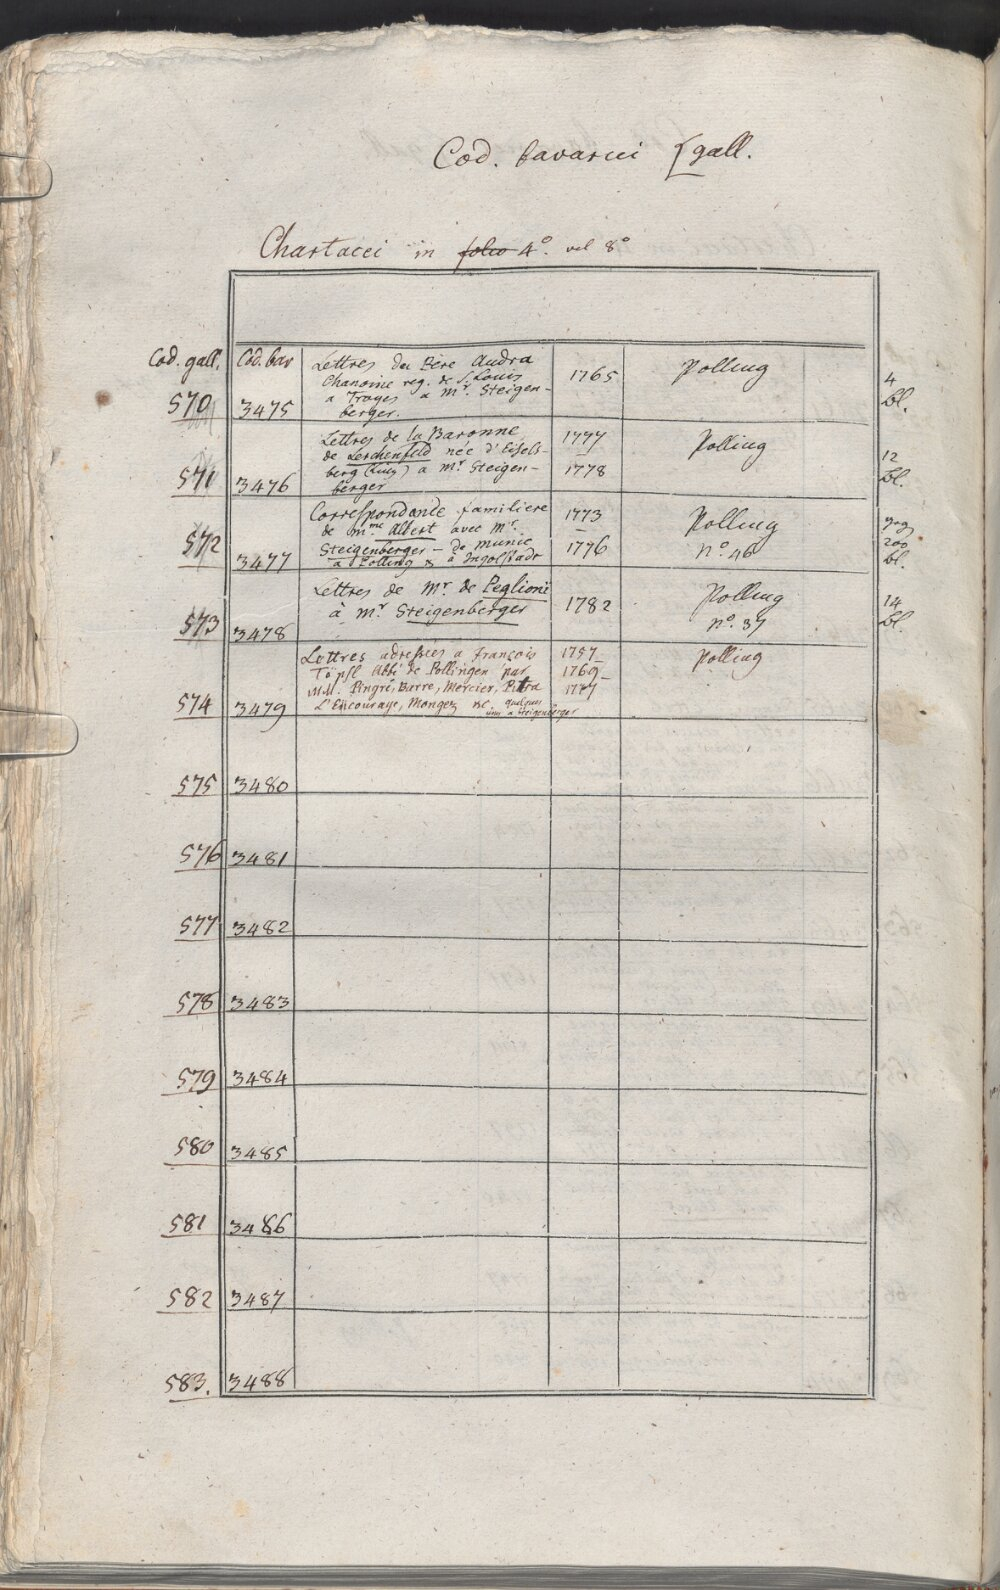 Cod. bavarici [gall.
Chartacei in folio 4° vel 8°
Cod. gall. Cod. bav
570 3475 Lettres du Père Audra 1765 Polling 4 bl.
Chanoine reg. de S. Louis
a Troyes a Mr. Steigen-
berger.
571 3476 Lettres de la Baronne 1777 – 1778 Polling 12 bl.
de Lerchenfeld née d'Eisels-
berg a Mr Steigen-
berger
572 3477 Correspondance familiere 1773 – 1776 Polling n° 46 200 bl.
de Mme Albert avec Mr.
Steigenberger – de Munic
a Polling & a Ingolstadt
573 3478 Lettres de Mr. de Peglioni 1782 Polling n° 37 14 bl.
à Mr Steigenberger
574 3479 Lettres adressées a François 1757– Polling
Töpsl Abbé de Pollingen par 1769–
MM. Pingré, Barre, Mercier, Pitra 1777
L'Encouraye, Mongez &c quelques
unes a Steigenberger
575 3480
576 3481
577 3482
578 3483
579 3484
580 3485
581 3486
582 3487
583. 3488